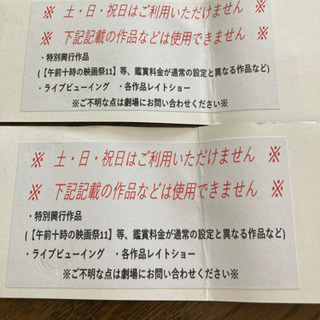 ※ 土・日・祝日はご利用いただけません ※
※ 下記記載の作品などは使用できません ※
・特別興行作品
(【午前十時の映画祭11】等、鑑賞料金が通常の設定と異なる作品など)
・ライブビューイング ・各作品レイトショー
※ご不明な点は劇場にお問い合わせください※
※ 土・日・祝日はご利用いただけません ※
※ 下記記載の作品などは使用できません ※
・特別興行作品
(【午前十時の映画祭11】等、鑑賞料金が通常の設定と異なる作品など)
・ライブビューイング ・各作品レイトショー
※ご不明な点は劇場にお問い合わせください※